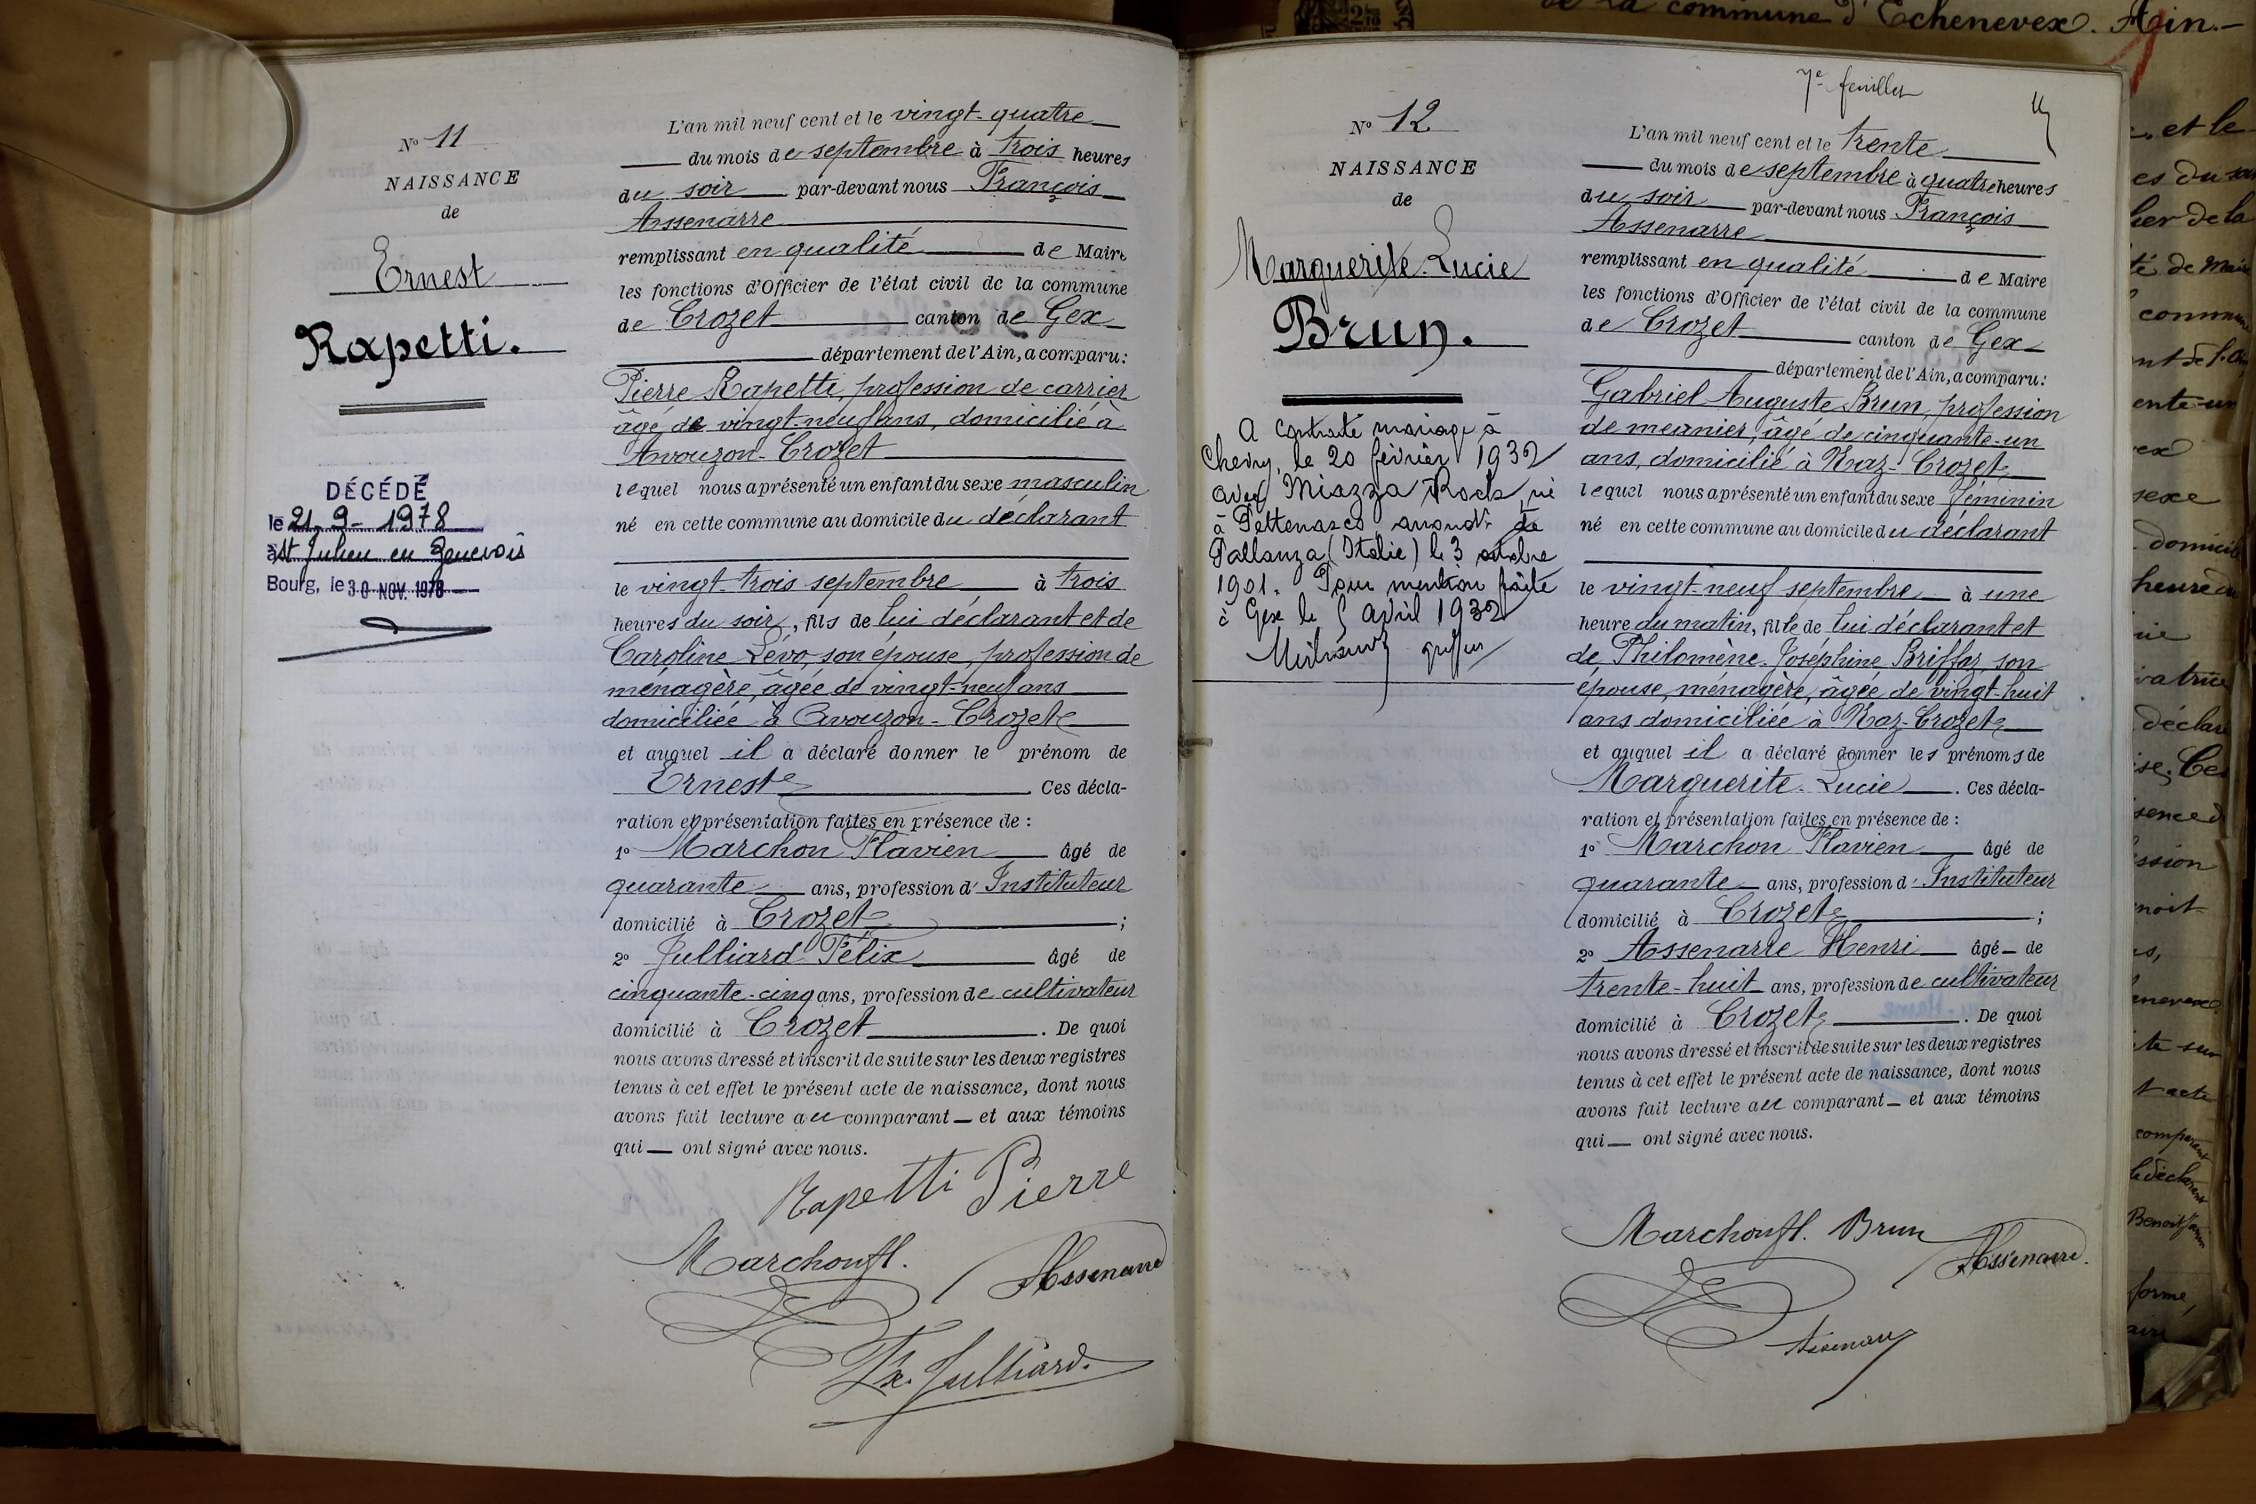 de la commune d'Echenevex. Ain.
N° 11
NAISSANCE
de
Ernest
Rapetti.
DÉCÉDÉ
le 21-9-1978
à St Julien en Genevois
Bourg, le 30 NOV. 1978
L'an mil neuf cent et le vingt-quatre
du mois de septembre à trois heures
du soir par-devant nous François
Assenarre
remplissant en qualité de Maire
les fonctions d'Officier de l'état civil de la commune
de Crozet canton de Gex
département de l'Ain, a comparu:
Pierre Rapetti, profession de carrier
âgé de vingt-neuf ans, domicilié à
Avouzon-Crozet
lequel nous a présenté un enfant du sexe masculin
né en cette commune au domicile du déclarant
le vingt-trois septembre à trois
heures du soir, fils de lui déclarant et de
Caroline Lévo, son épouse, profession de
ménagère, âgée de vingt-neuf ans
domiciliée à Avouzon-Crozet
et auquel il a déclaré donner le prénom de
Ernest Ces décla-
ration et présentation faites en présence de :
1° Marchon Flavien âgé de
quarante ans, profession d'Instituteur
domicilié à Crozet ;
2° Julliard Félix âgé de
cinquante-cinq ans, profession de cultivateur
domicilié à Crozet . De quoi
nous avons dressé et inscrit de suite sur les deux registres
tenus à cet effet le présent acte de naissance, dont nous
avons fait lecture au comparant et aux témoins
qui ont signé avec nous.
Rapetti Pierre
Marchon fl. Assenarre
Fx. Julliard.
7e feuillet
N° 12
NAISSANCE
de
Marguerite Lucie
Brun.
A contracté mariage à
Chevry, le 20 février 1932
avec Miazza Rock né
à Pettenasco arrondt de
Pallanza (Italie) le 3 octobre
1901. Pour mention faite
à Gex le 5 avril 1932
L'an mil neuf cent et le trente
du mois de septembre à quatre heures
du soir par-devant nous François
Assenarre
remplissant en qualité de Maire
les fonctions d'Officier de l'état civil de la commune
de Crozet canton de Gex
département de l'Ain, a comparu:
Gabriel Auguste Brun, profession
de meunier, âgé de cinquante-un
ans, domicilié à Naz-Crozet
lequel nous a présenté un enfant du sexe féminin
né en cette commune au domicile du déclarant
le vingt-neuf septembre à une
heure du matin, fille de lui déclarant et
de Philomène-Joséphine Briffaz, son
épouse, ménagère, âgée de vingt-huit
ans domiciliée à Naz-Crozet
et auquel il a déclaré donner les prénoms de
Marguerite-Lucie . Ces décla-
ration et présentation faites en présence de :
1° Marchon Flavien âgé de
quarante ans, profession d'Instituteur
domicilié à Crozet ;
2° Assenarre Henri âgé de
trente-huit ans, profession de cultivateur
domicilié à Crozet . De quoi
nous avons dressé et inscrit de suite sur les deux registres
tenus à cet effet le présent acte de naissance, dont nous
avons fait lecture au comparant et aux témoins
qui ont signé avec nous.
Marchon fl. Brun Assenarre.